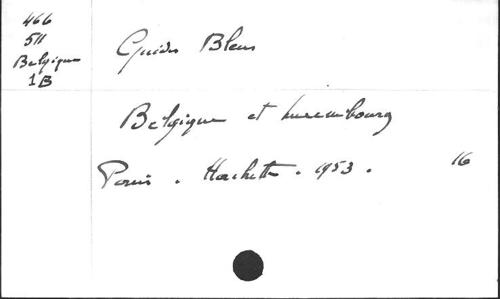 466
511
Belgique
1B
Guides Bleus
Belgique et Luxembourg
Paris. Hachette. 1953. 16